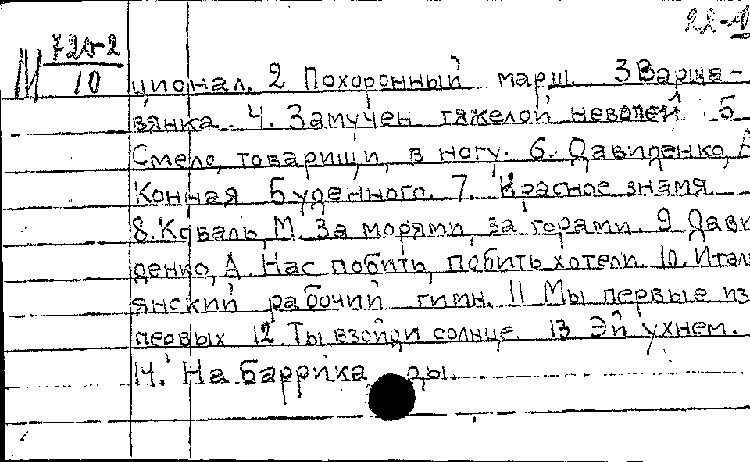 22-
М 720-2
10
ционал. 2 Похоронный марш. 3 Варша-
вянка 4. Замучен тяжелой неволей 5
Смело, товарищи, в ногу. 6. Давиденко, А
Конная Буденного. 7. Красное знамя
8. Коваль, М. За морями, за горами. 9 Дави
денко, А. Нас побить, побить хотели. 10. Итал
янский рабочий гимн. 11 Мы первые из
первых 12 Ты взойди солнце. 13 Эй ухнем.
14. На баррика ды.